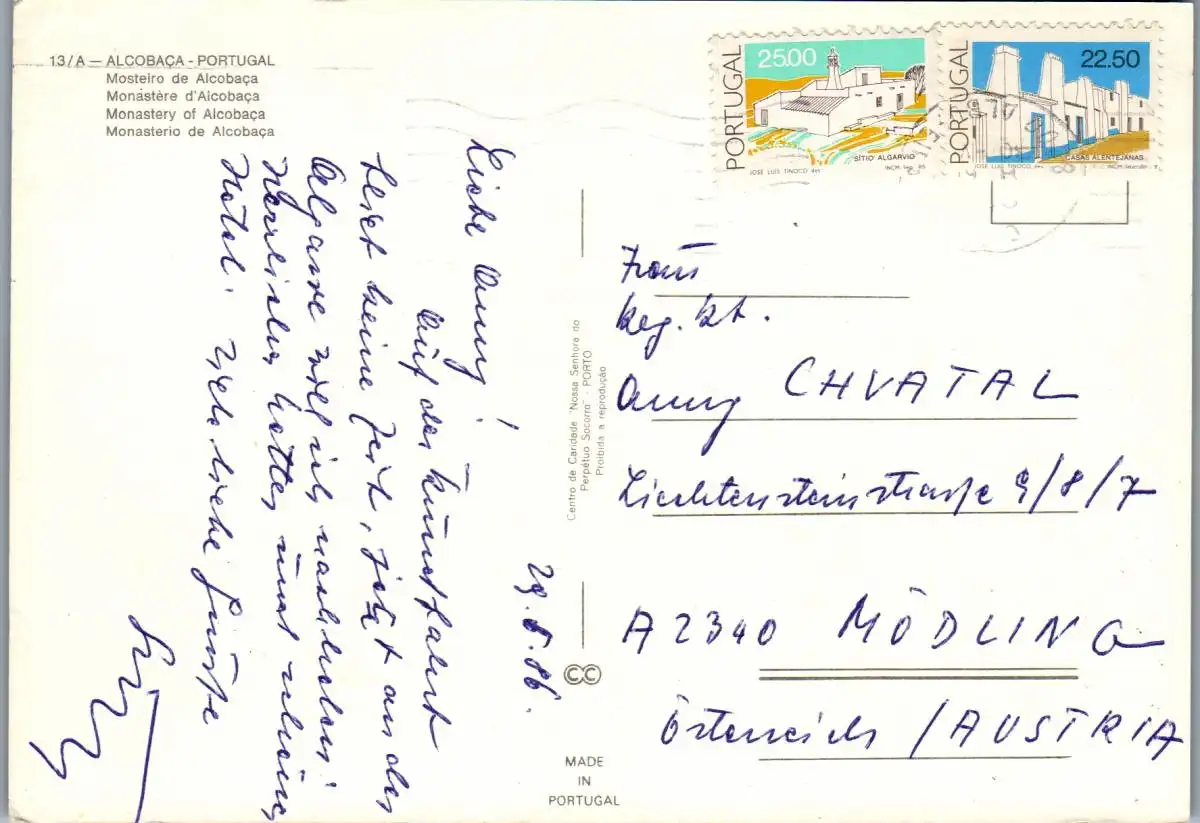 13/A — ALCOBAÇA - PORTUGAL
Mosteiro de Alcobaça
Monastère d'Alcobaça
Monastery of Alcobaça
Monasterio de Alcobaça
PORTUGAL
25.00
SÍTIO ALGARVIO
JOSÉ LUÍS TINOCO des
INCM
PORTUGAL
22.50
CASAS ALENTEJANAS
JOSÉ LUÍS TINOCO
INCM
29.5.86.
Liebe Anny!
Auf der Kunstfahrt
bleibt keine Zeit, jetzt an der
Algarve will ich nachholen:
Herrliches Wetter und schönes
Hotel. Viele liebe Grüsse
Centro de Caridade "Nossa Senhora do
Perpétuo Socorro" - PORTO
Proibida a reprodução
Frau
Reg. Rt.
Anny CHVATAL
Liechtensteinstrasse 9/8/7
A 2340 MÖDLING
Österreich / AUSTRIA
CC
MADE
IN
PORTUGAL